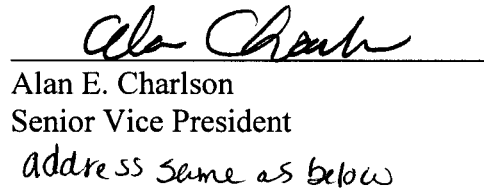 Alan Charlson
Alan E. Charlson
Senior Vice President
address same as below